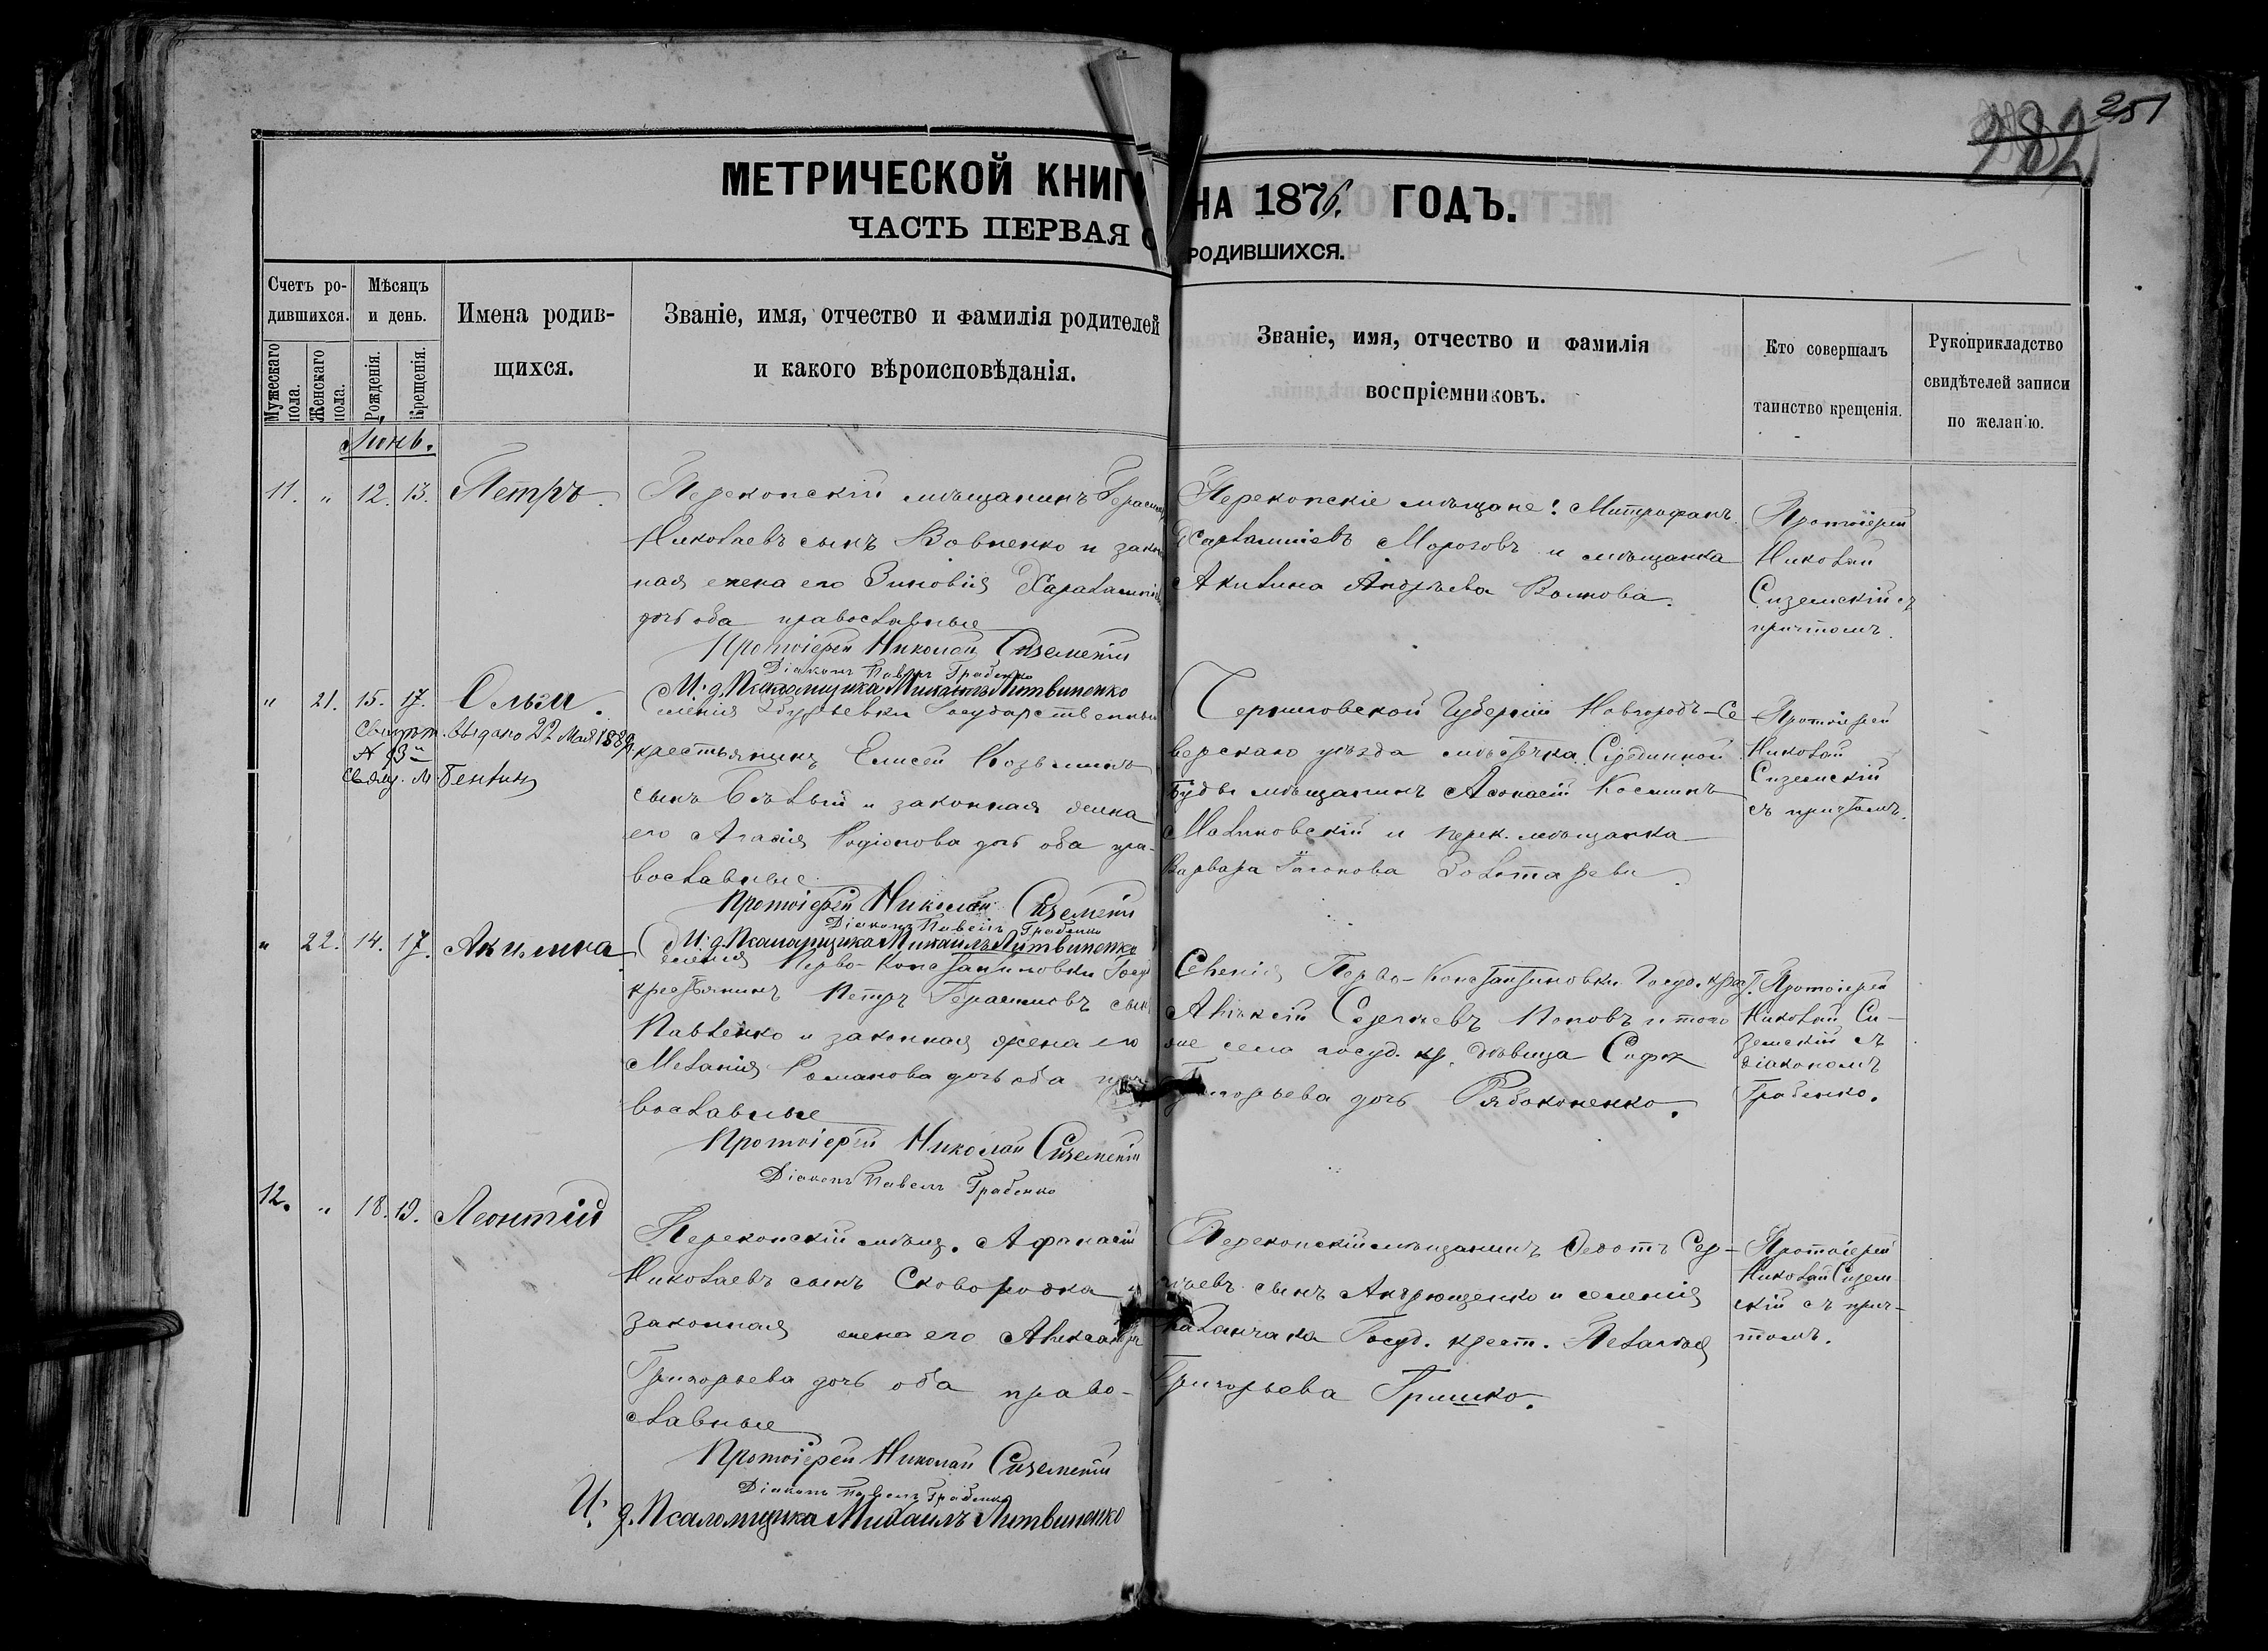 251
282
МЕТРИЧЕСКОЙ КНИГ НА 1876. ГОДЪ.
ЧАСТЬ ПЕРВАЯ О РОДИВШИХСЯ.
Счетъ ро-
дившихся.
Мужескаго пола.
Женскаго пола.
Мѣсяцъ
и день.
Рожденія.
Крещенія.
Имена родив-
щихся.
Званіе, имя, отчество и фамилія родителей
и какого вѣроисповѣданія.
Званіе, имя, отчество и фамилія
воспріемниковъ.
Кто совершалъ
таинство крещенія.
Рукоприкладство
свидѣтелей записи
по желанію.
Іюнь.
11. " 12. 13. Петръ.
Перекопскій мѣщанинъ Герасим
Николаевъ сынъ Вовненко и закон
ная жена его Зиновія Харалампіе
дочь оба православные
Протоіерей Николай Сиземскій
Діаконъ Павелъ Грабенко
И. д. Псаломщика Михаилъ Литвиненко
Перекопскіе мѣщане: Митрофанъ
Харлампіевъ Морозовъ и мѣщанка
Акилина Андреева Волкова.
Протоіерей
Николай
Сиземскій съ
причтомъ.
" 21. 15. 17. Ольга.
выдано 22 Мая 1889
N 13
Свящ. М.
Селенія Збурьевки Государственный
крестьянинъ Елисей Козьминъ
сынъ Бѣлый и законная жена
его Агафія Родіонова дочь оба пра-
вославные
Протоіерей Николай Сиземскій
Діаконъ Павелъ Грабенко
И. д. Псаломщика Михаилъ Литвиненко
Черниговской Губерніи Новгородъ-Се
верскаго уѣзда мѣстечка Срединной
Буды мѣщанинъ Афонасій Косминъ
Малиновскій и перек. мѣщанка
Варвара Золотарева.
Протоіерей
Николай
Сиземскій
съ причтомъ.
" 22. 14. 17. Акилина.
Селенія Перво-Константиновки Госуд
крестьянинъ Петръ Герасимовъ сынъ
Павленко и законная жена его
Меланія Романова дочь оба пра
вославные
Протоіерей Николай Сиземскій
Діаконъ Павелъ Грабенко
Селенія Перво-Константиновки Госуд. крест.
Алексій Сергѣевъ Поповъ и того
же села госуд. кр. дѣвица Софія
Григорьева дочь Рябоконенко.
Протоіерей
Николай Си-
земскій съ
діакономъ
Грабенко.
12. " 18. 19. Леонтій
Перекопскій мѣщ. Афанасій
Николаевъ сынъ Сковородка и
законная жена его Александра
Григорьева дочь оба право-
славные
Протоіерей Николай Сиземскій
Діаконъ Павелъ Грабенко
И. д. Псаломщика Михаилъ Литвиненко
Перекопскій мѣщанинъ Федотъ Сер-
гѣевъ сынъ Андрющенко и селенія
Каланчака Госуд. крест. Пелагія
Григорьева Гришко.
Протоіерей
Николай Сизем
скій съ прич-
томъ.